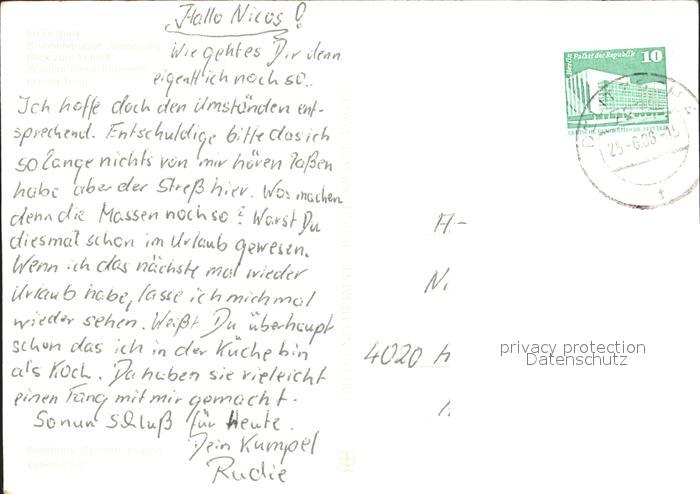 Hallo Nicos!
Wie gehtes Dir denn
eigentlich noch so..
Ich hoffe doch den Umständen ent-
sprechend. Entschuldige bitte das ich
so lange nichts von mir hören laßen
habe aber der Streß hier. Was machen
denn die Massen noch so? Warst Du
diesmal schon im Urlaub gewesen.
Wenn ich das nächste mal wieder
Urlaub habe, lasse ich mich mal
wieder sehen. Weißt Du überhaupt
schon das ich in der Küche bin
als Koch. Da haben sie vieleicht
einen Fang mit mir gemacht.
So nun Schluß für Heute.
Dein Kumpel
Rudie
Berlin Palast der Republik 10
4020
privacy protection
Datenschutz